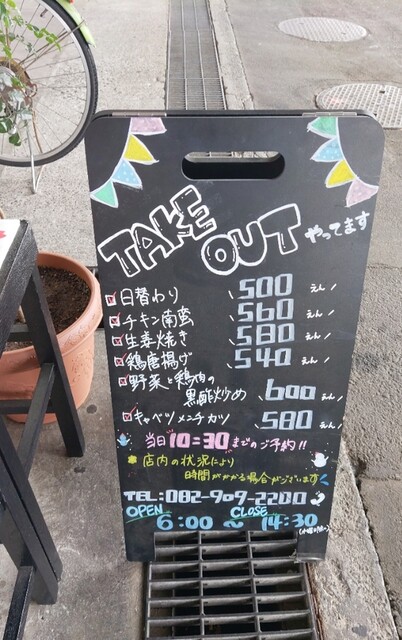 TAKE
OUT やってます
日替わり 500 えん
チキン南蛮 560 えん
生姜焼き 580 えん
鶏唐揚げ 540 えん
野菜と鶏肉の
黒酢炒め 600 えん
キャベツメンチカツ 580 えん
当日10:30までのご予約!!
店内の状況により
時間がかかる場合がございます
TEL:082-909-2200
OPEN CLOSE
6:00 ~ 14:30